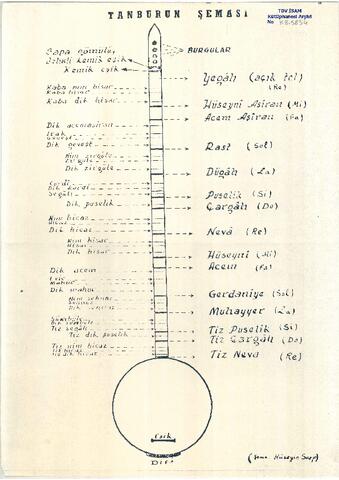 TANBURUN ŞEMASI
TDV İSAM
Kütüphanesi Arşivi
No
BURGULAR
Kemik eşik
Yegâh (açık tel)
(Re)
Kaba nim hisar
Kaba hisar
Kaba dik hisar
Hüseyni Aşiran (Mi)
Acem Aşiran (Fa)
Dik acemaşiran
Irak
Geveşt
Dik geveşt
Rast (Sol)
Nim zirgüle
Zirgüle
Dik zirgüle
Dügâh (La)
Kürdi
Dik kürdi
Segâh
Puselik (Si)
Dik puselik
Çargâh (Do)
Nim hicaz
Hicaz
Dik hicaz
Neva (Re)
Nim hisar
Hisar
Dik hisar
Hüseyni (Mi)
Acem (Fa)
Dik acem
Eviç
Mahur
Dik mahur
Gerdaniye (Sol)
Nim şehnaz
Şehnaz
Dik şehnaz
Muhayyer (La)
Sünbüle
Dik sünbüle
Tiz segâh
Tiz Puselik (Si)
Tiz dik puselik
Tiz Çargâh (Do)
Tiz nim hicaz
Tiz hicaz
Tiz dik hicaz
Tiz Neva (Re)
Eşik
(Şema: Hüseyin